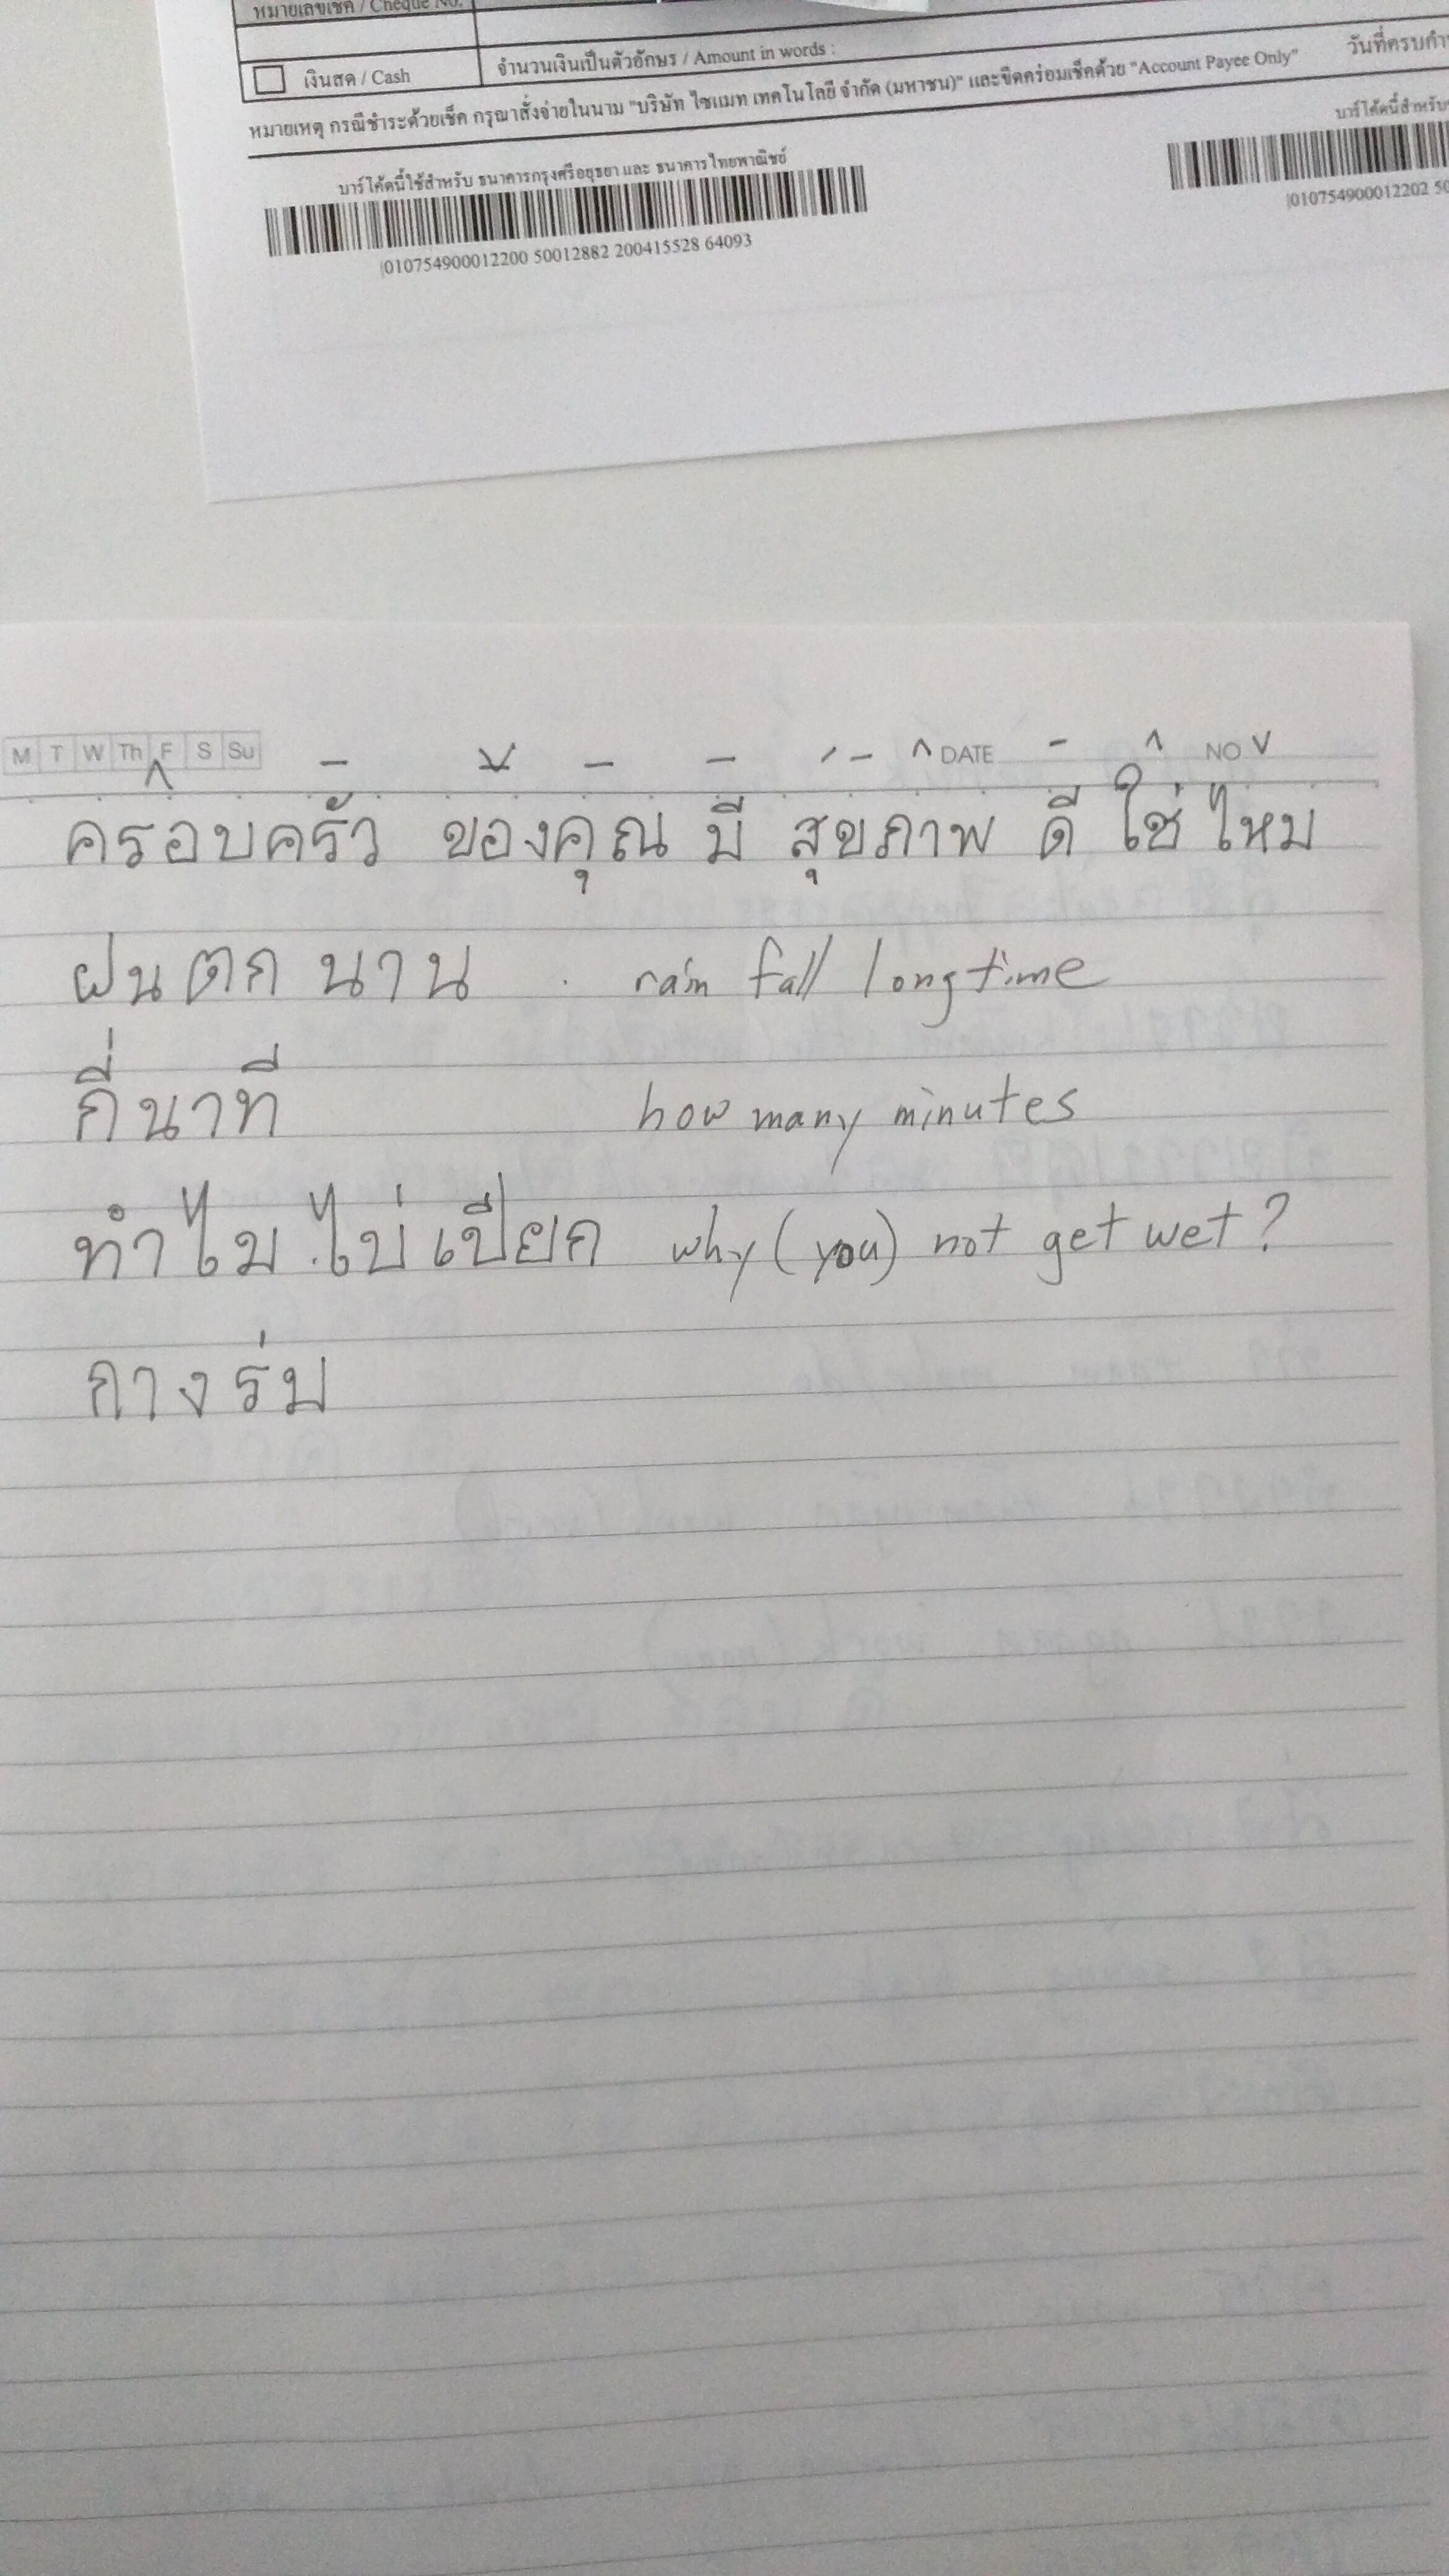 หมายเลขเช็ค / Cheque No.
เงินสด / Cash
จำนวนเงินเป็นตัวอักษร / Amount in words :
วันที่ครบกำ
หมายเหตุ กรณีชำระด้วยเช็ค กรุณาสั่งจ่ายในนาม "บริษัท ไซแมท เทคโนโลยี จำกัด (มหาชน)" และขีดคร่อมเช็คด้วย "Account Payee Only"
บาร์โค้ดนี้ใช้สำหรับ ธนาคารกรุงศรีอยุธยา และ ธนาคารไทยพาณิชย์
บาร์โค้ดนี้สำหรับ
|010754900012200 50012882 200415528 64093
|010754900012202 50
M T W Th F S Su
DATE
NO
ครอบครัว ของคุณ มี สุขภาพ ดี ใช่ ไหม
ฝนตก นาน . rain fall longtime
กี่นาที how many minutes
ทำไม .ไม่เปียก why (you) not get wet?
กางร่ม